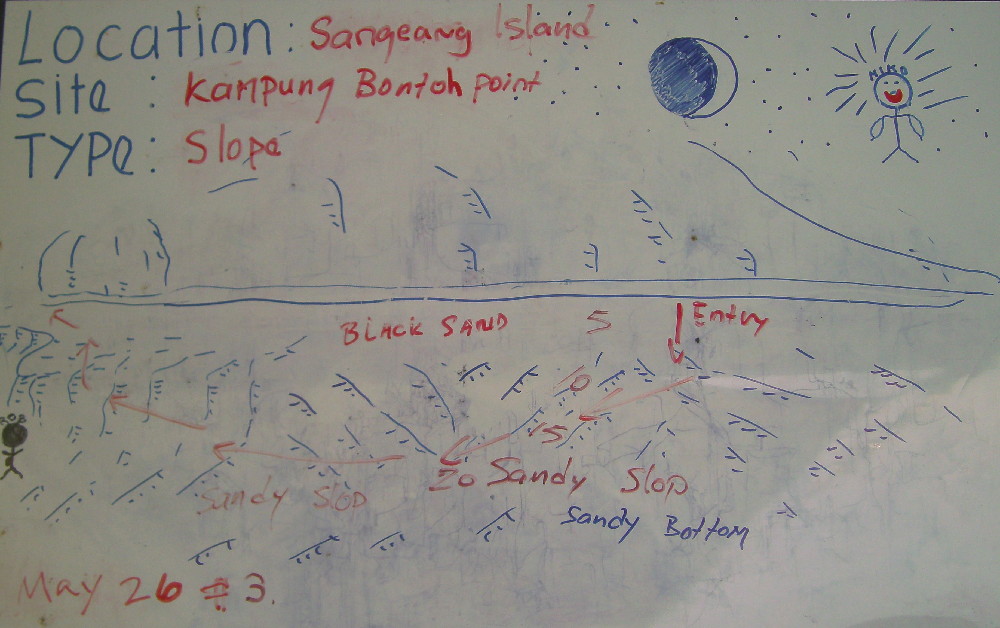 Location: Sangeang Island
Site : Kampung Bontoh point
TYPE: Slope
MIKO
BLACK SAND
5
Entry
10
15
ROB
20 Sandy Slop
Sandy Slop
Sandy Bottom
May 26 # 3.